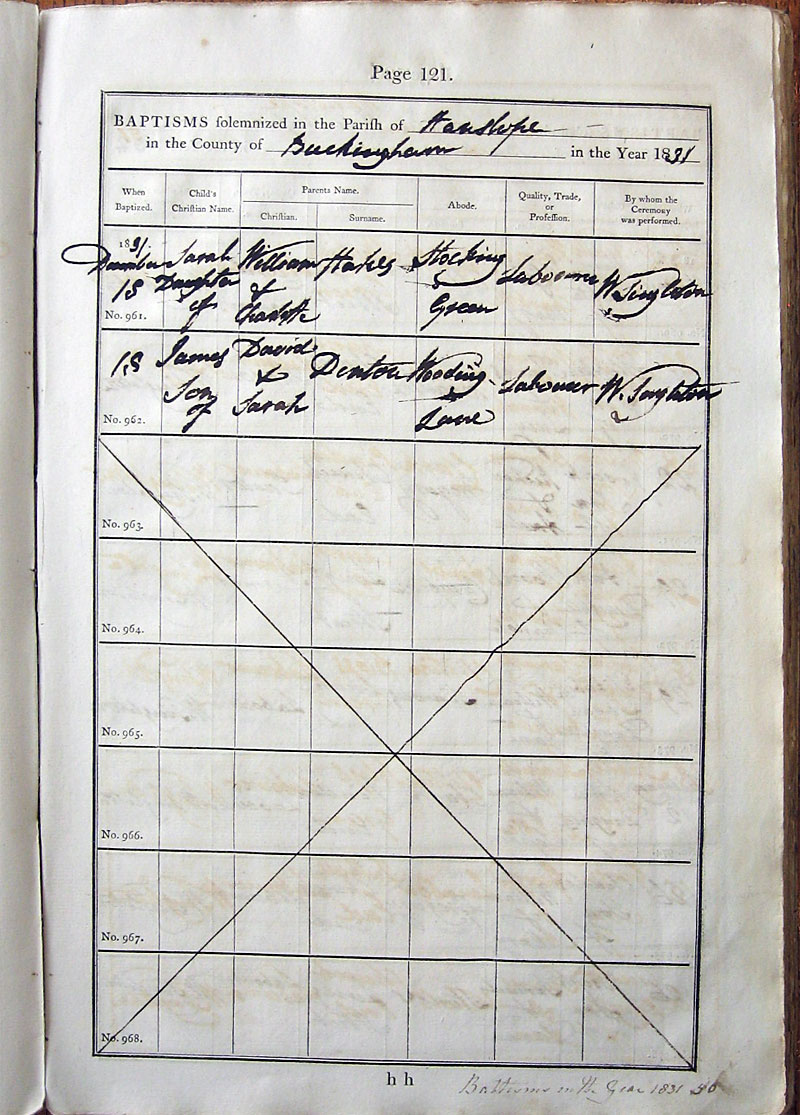 Page 121.
BAPTISMS solemnized in the Parish of Hanslope
in the County of Buckingham in the Year 1831
When Baptized. Child's Christian Name. Parents Name. Abode. Quality, Trade, or Profession. By whom the Ceremony was performed.
Christian. Surname.
1831.
December Sarah William Stocking
18 Daughter & Labourer W. Singleton
of Charlotte Green
No. 961.
18 James David Denton Wooding Labourer W. Singleton
Son &
of Sarah Lane
No. 962.
No. 963.
No. 964.
No. 965.
No. 966.
No. 967.
No. 968.
h h
Baptisms in the Year 1831 56